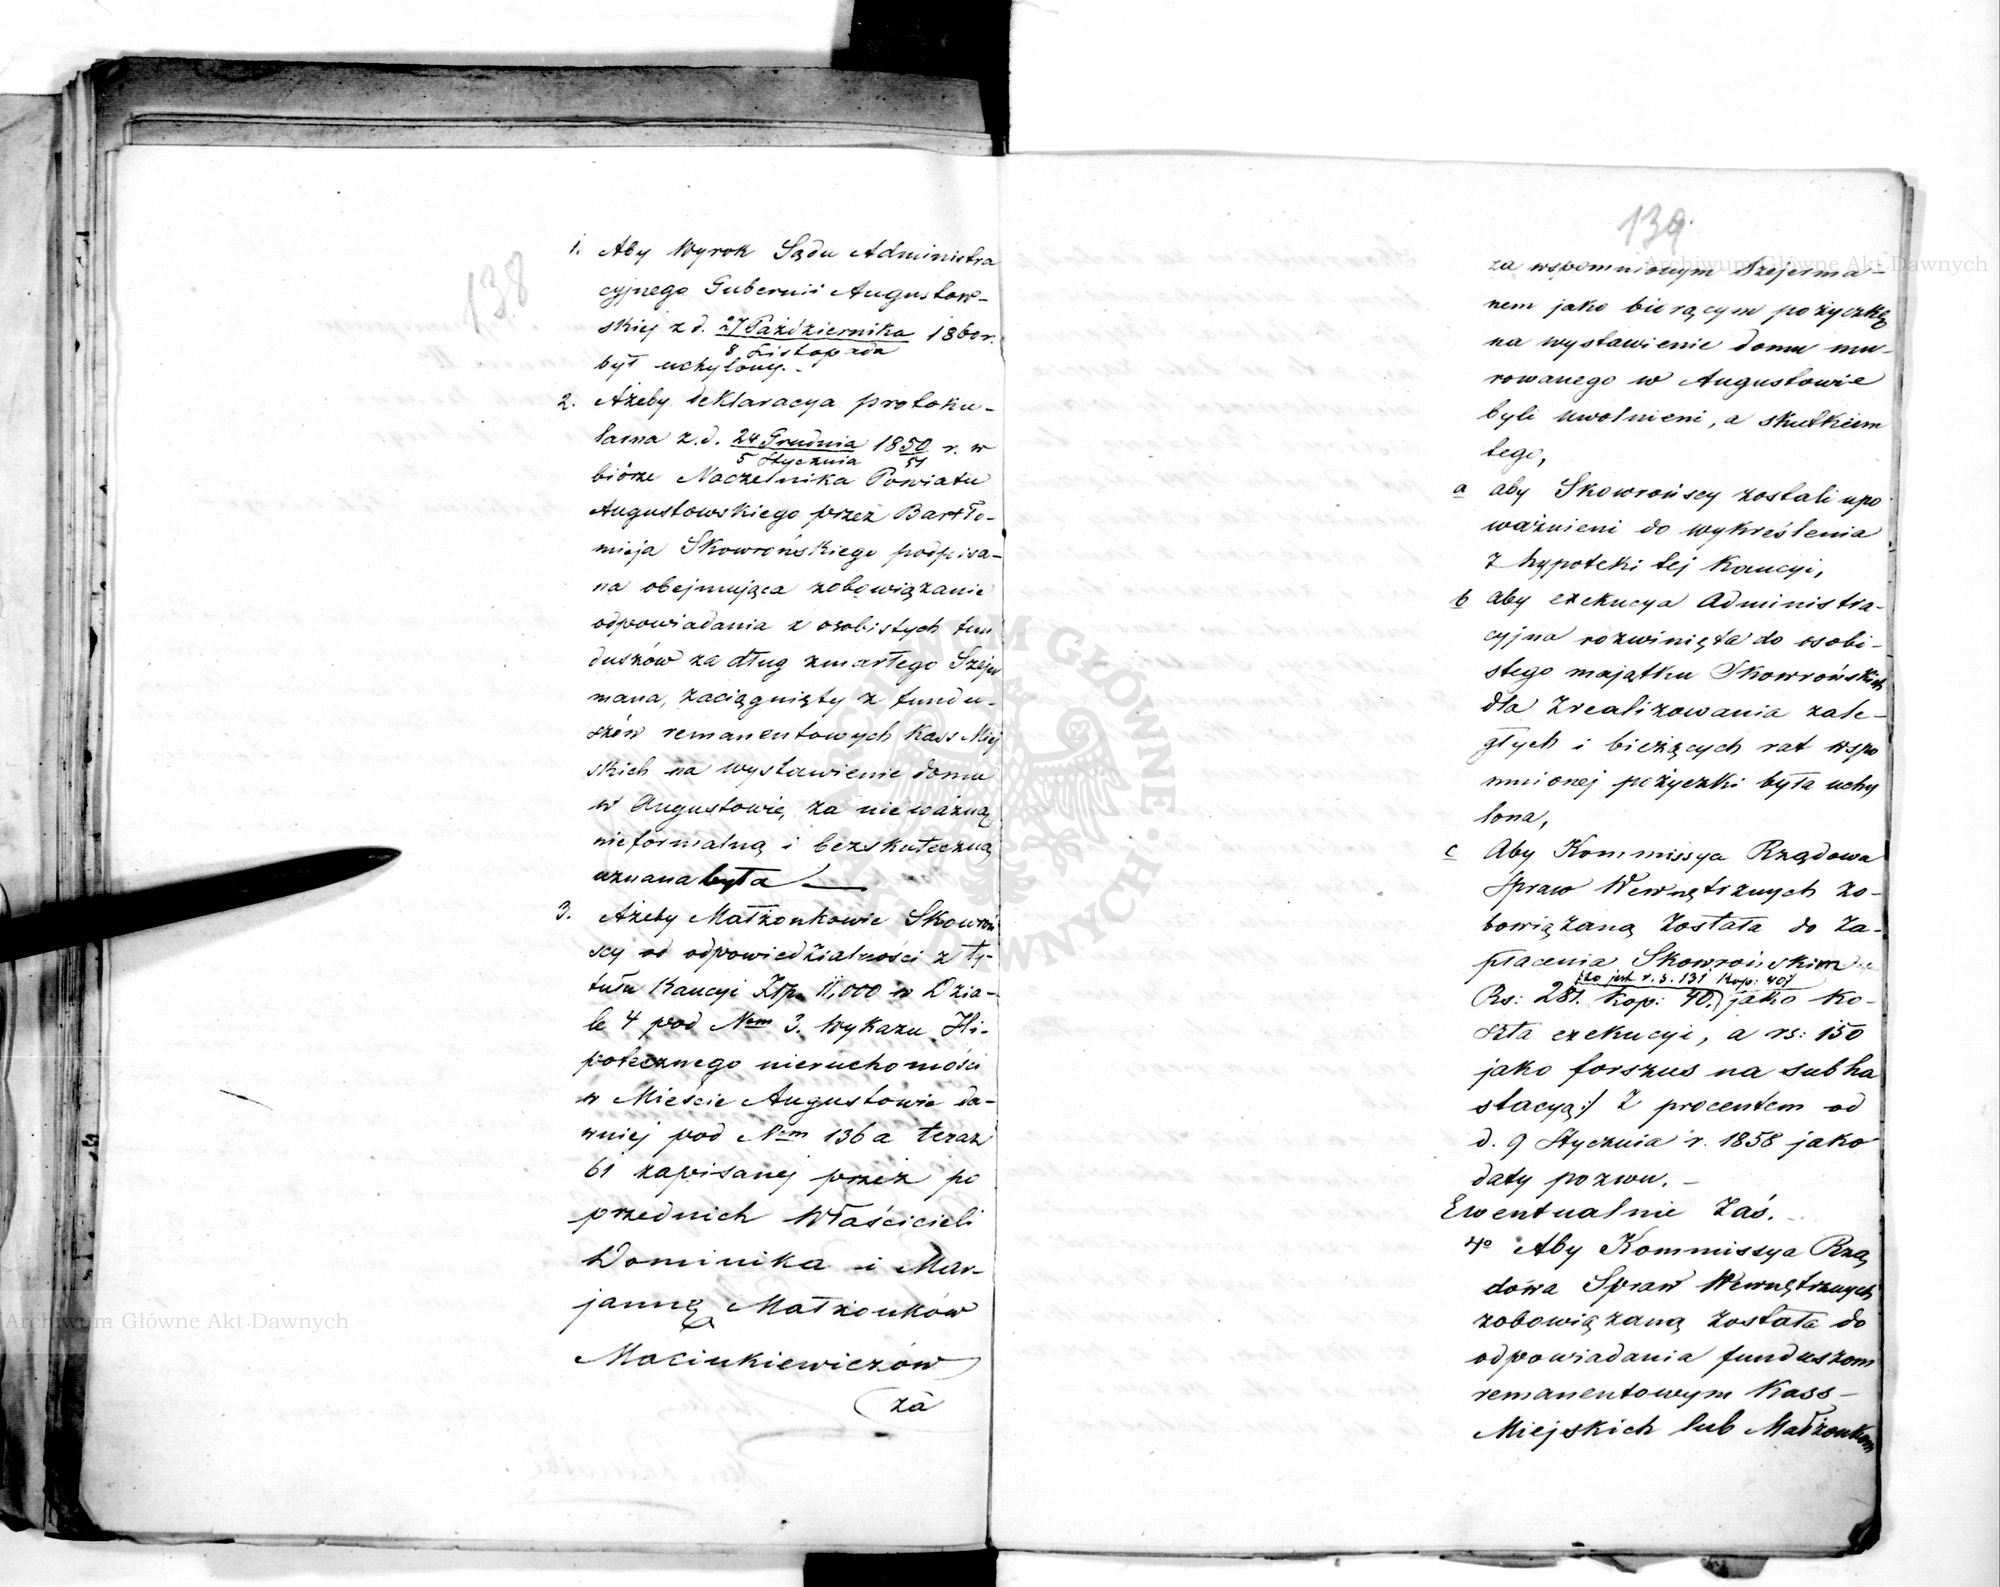 138
1. Aby Wyrok Sądu Administra
cyjnego Gubernii Augustow-
skiej z d. 27 Października 1860 r.
8 Listopada
był uchylony. -
2. Ażeby deklaracya protoku-
larna z. d. 24 Grudnia 1850 r. w
5 Stycznia 51
biórze Naczelnika Powiatu
Augustowskiego przez Bartło-
mieja Skowrońskiego podpisa-
na obejmująca zobowiązanie
odpowiadania z osobistych fun
duszów za dług zmarłego Szejer
mana, zaciągnięty z fundu-
szów remanentowych Kass Miej
skich na wystawienie domu
w Augustowie, za nieważną
nieformalną i bezskuteczną
uznana była —
3. Ażeby Małżonkowie Skowroń
scy od odpowiedzialności z ty-
tułu Kaucyi Złp. 11,000 w Dzia-
le 4 pod Nem 3. Wykazu Hi-
potecznego nieruchomości
w Mieście Augustowie da-
wniej pod Nem 136 a teraz
61 zapisanej przez po
przednich Właścicieli
Dominika i Mar-
jannę Małżonków
Maciukiewiczów
za
139.
za wspomnionym Szejerma-
nem jako biorącym pożyczkę
na wystawienie domu mu-
rowanego w Augustowie
byli uwolnieni, a skutkiem
tego,
a aby Skowrońscy zostali upo
ważnieni do wykreślenia
z hypoteki tej Kaucyi,
b aby exekucya Administra-
cyjna rozwinięta do osobi-
stego majątku Skowrońskich
dla zrealizowania zale-
głych i bieżących rat wspo
mnionej pożyczki była uchy
lona,
c Aby Kommissya Rządowa
Spraw Wewnętrznych zo-
bowiązaną została do za-
płacenia Skowrońskim
/to jest r. s. 131 kop: 40/
Rs: 281. kop: 40. jako ko-
szta exekucyi, a rs: 150
jako forszus na subha
stacyą:/ z procentem od
d. 9 Stycznia r. 1858 jako
daty pozwu. -
Ewentualnie zaś. -
4o Aby Kommissya Rzą
dowa Spraw Wewnętrznych
zobowiązaną została do
odpowiadania funduszom
remanentowym Kass-
Miejskich lub Małżonkom
Archiwum Główne Akt Dawnych
Archiwum Główne Akt Dawnych
ARCHIWUM GŁÓWNE AKT DAWNYCH